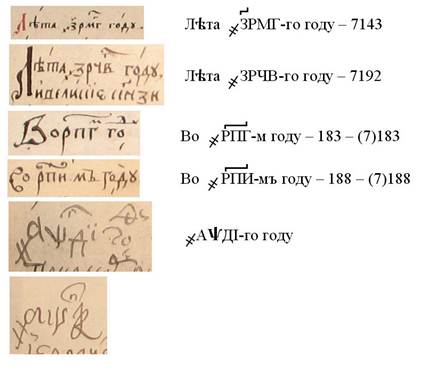 Лѣта ҂ЗРМГ-го году – 7143
Лѣта ҂ЗРЧВ-го году – 7192
Во ҂РПГ-м году – 183 – (7)183
Во ҂РПИ-мъ году – 188 – (7)188
҂АѰДІ-го году
лѣта ҂зрмг году
Лѣта ҂зрчв году
Во рпг го
Во рпи мъ году
҂аѱді го